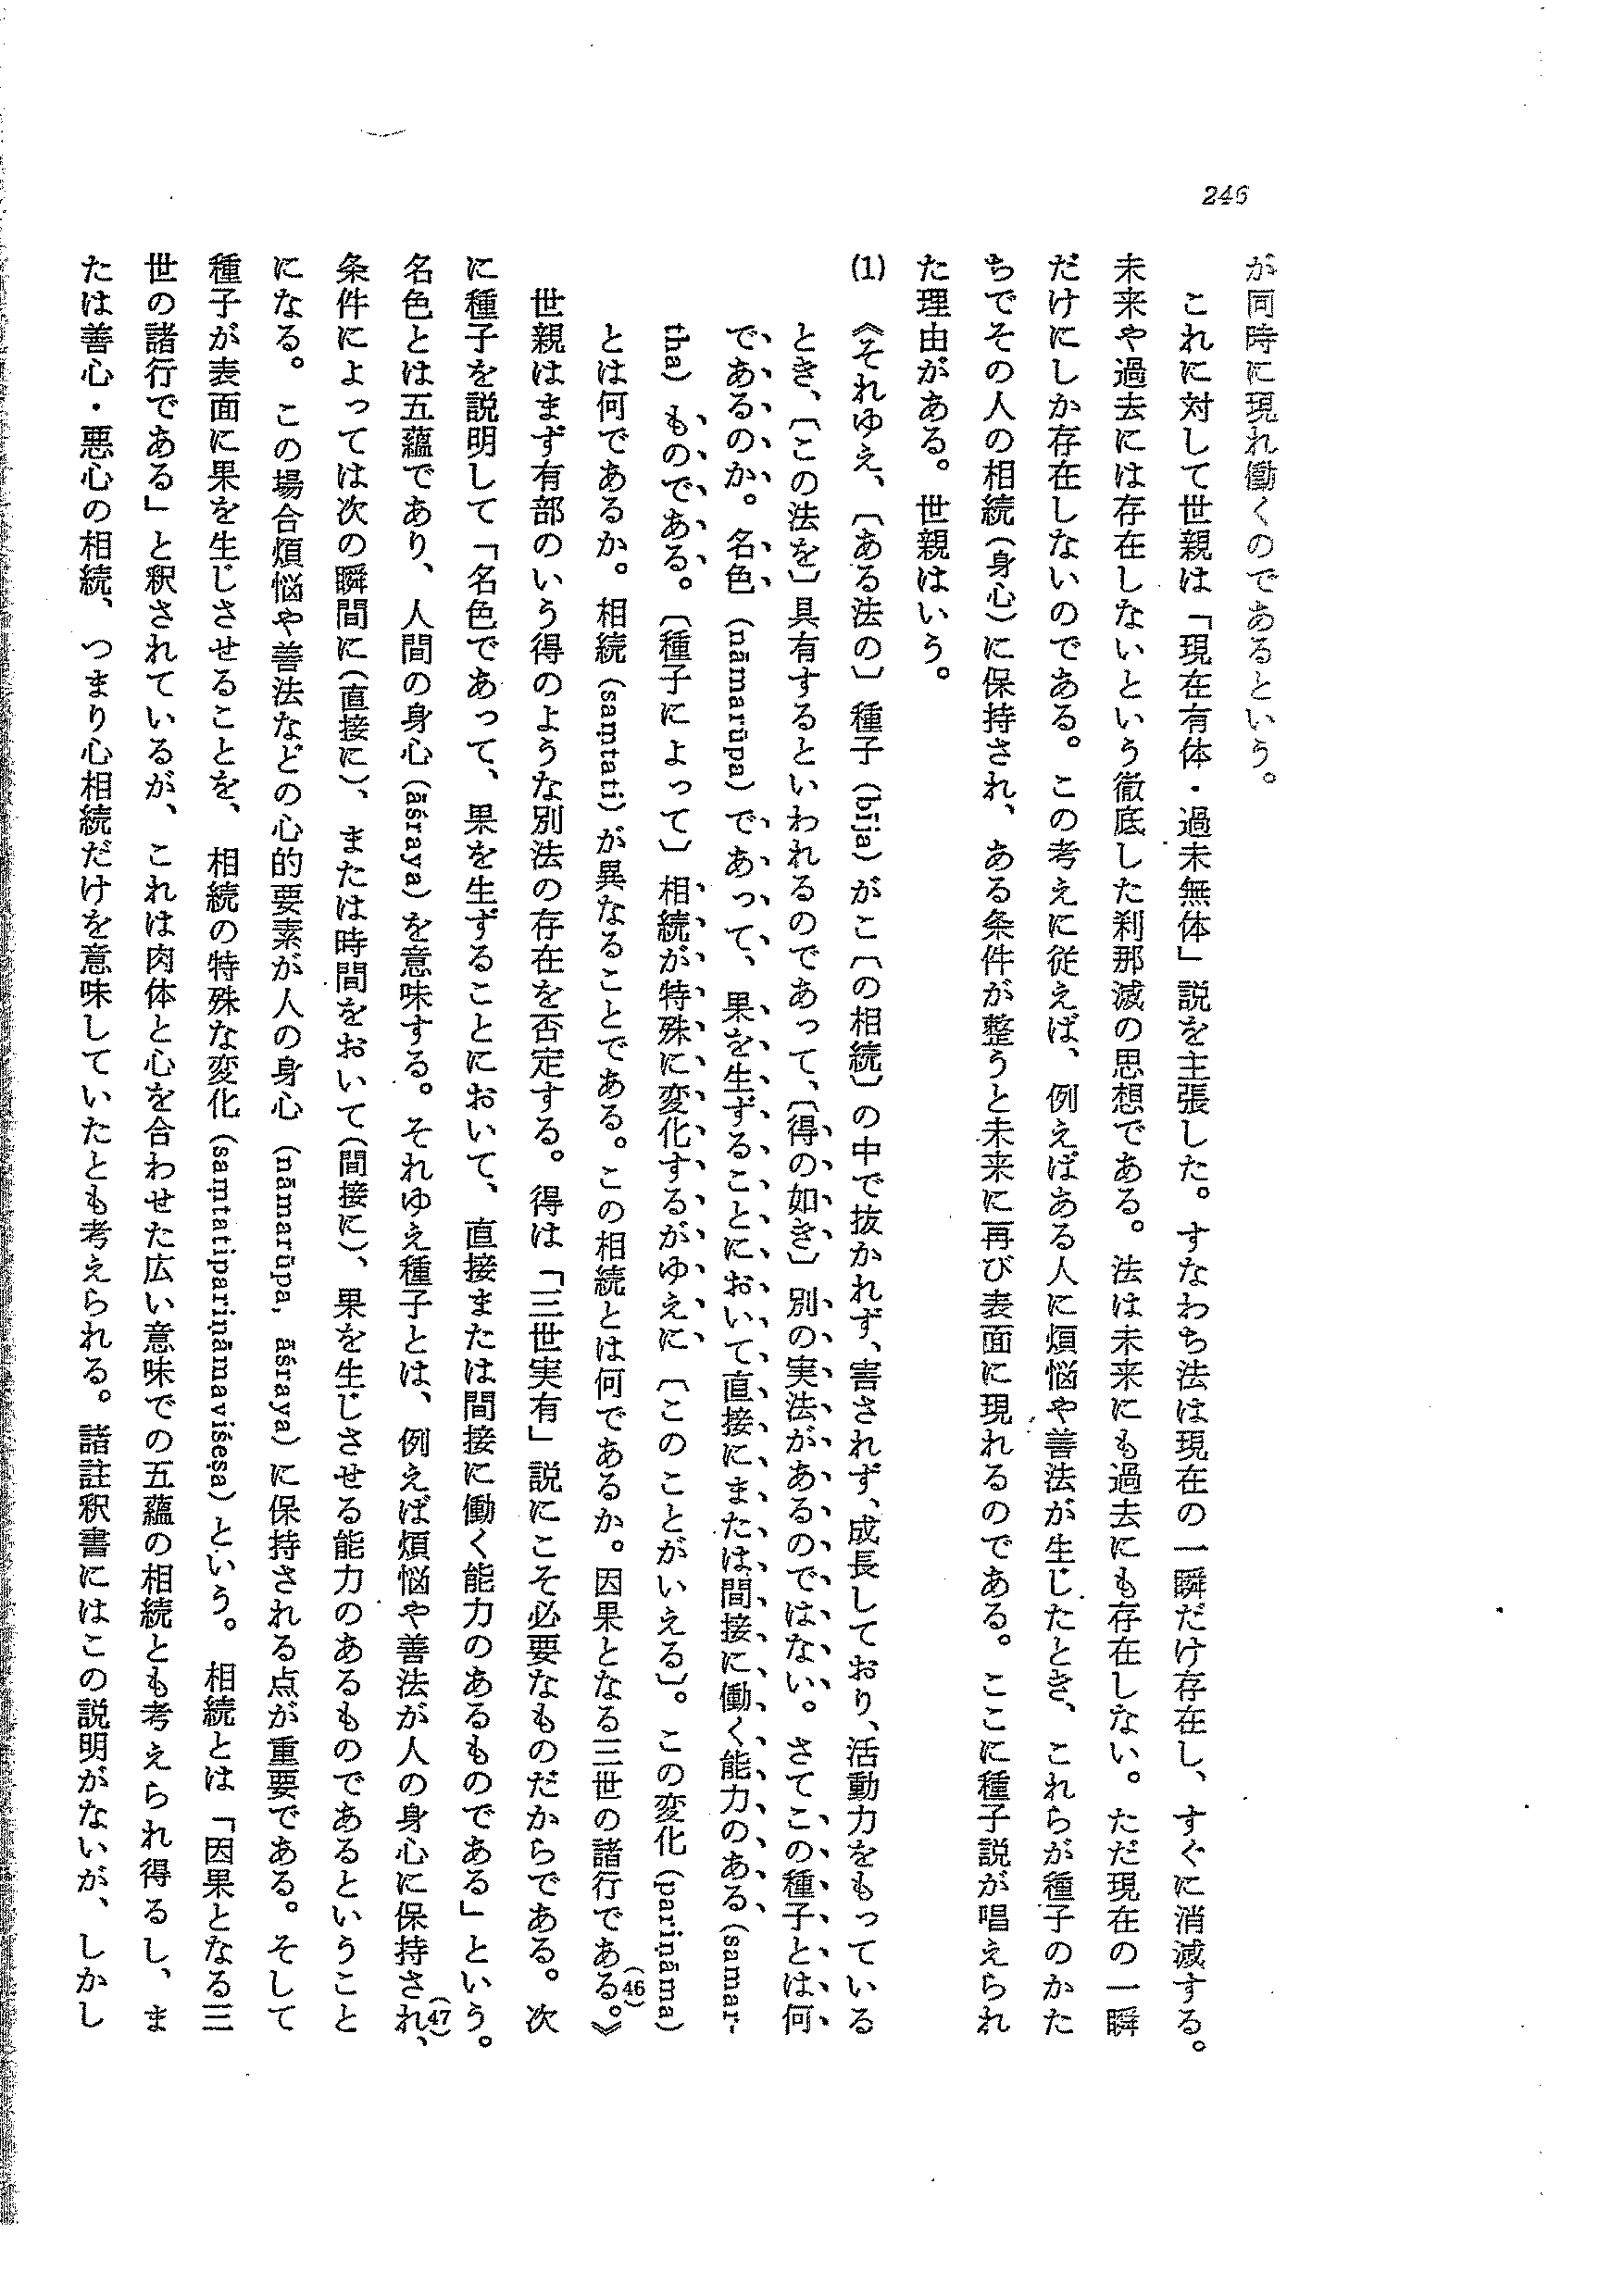 246
が同時に現れ働くのであるという。
これに対して世親は「現在有体・過未無体」説を主張した。すなわち法は現在の一瞬だけ存在し、すぐに消滅する。
未来や過去には存在しないという徹底した刹那滅の思想である。法は未来にも過去にも存在しない。ただ現在の一瞬
だけにしか存在しないのである。この考えに従えば、例えばある人に煩悩や善法が生じたとき、これらが種子のかた
ちでその人の相続(身心)に保持され、ある条件が整うと未来に再び表面に現れるのである。ここに種子説が唱えられ
た理由がある。世親はいう。
(1) 《それゆえ、〔ある法の〕種子(bīja)がこ〔の相続〕の中で抜かれず、害されず、成長しており、活動力をもっている
とき、〔この法を〕具有するといわれるのであって、〔得の如き〕別の実法があるのではない。さてこの種子とは何
であるのか。名色(nāmarūpa)であって、果を生ずることにおいて直接にまたは間接に働く能力のある(samar-
tha)ものである。〔種子によって〕相続が特殊に変化するがゆえに〔このことがいえる〕。この変化(pariṇāma)
とは何であるか。相続(saṃtati)が異なることである。この相続とは何であるか。因果となる三世の諸行である。》(46)
世親はまず有部のいう得のような別法の存在を否定する。得は「三世実有」説にこそ必要なものだからである。次
に種子を説明して「名色であって、果を生ずることにおいて、直接または間接に働く能力のあるものである」という。
名色とは五蘊であり、人間の身心(āśraya)を意味する。それゆえ種子とは、例えば煩悩や善法が人の身心に保持され、(47)
条件によっては次の瞬間に(直接に)、または時間をおいて(間接に)、果を生じさせる能力のあるものであるということ
になる。この場合煩悩や善法などの心的要素が人の身心(nāmarūpa, āśraya)に保持される点が重要である。そして
種子が表面に果を生じさせることを、相続の特殊な変化(saṃtatipariṇāmaviśeṣa)という。相続とは「因果となる三
世の諸行である」と釈されているが、これは肉体と心を合わせた広い意味での五蘊の相続とも考えられ得るし、ま
たは善心・悪心の相続、つまり心相続だけを意味していたとも考えられる。諸註釈書にはこの説明がないが、しかし